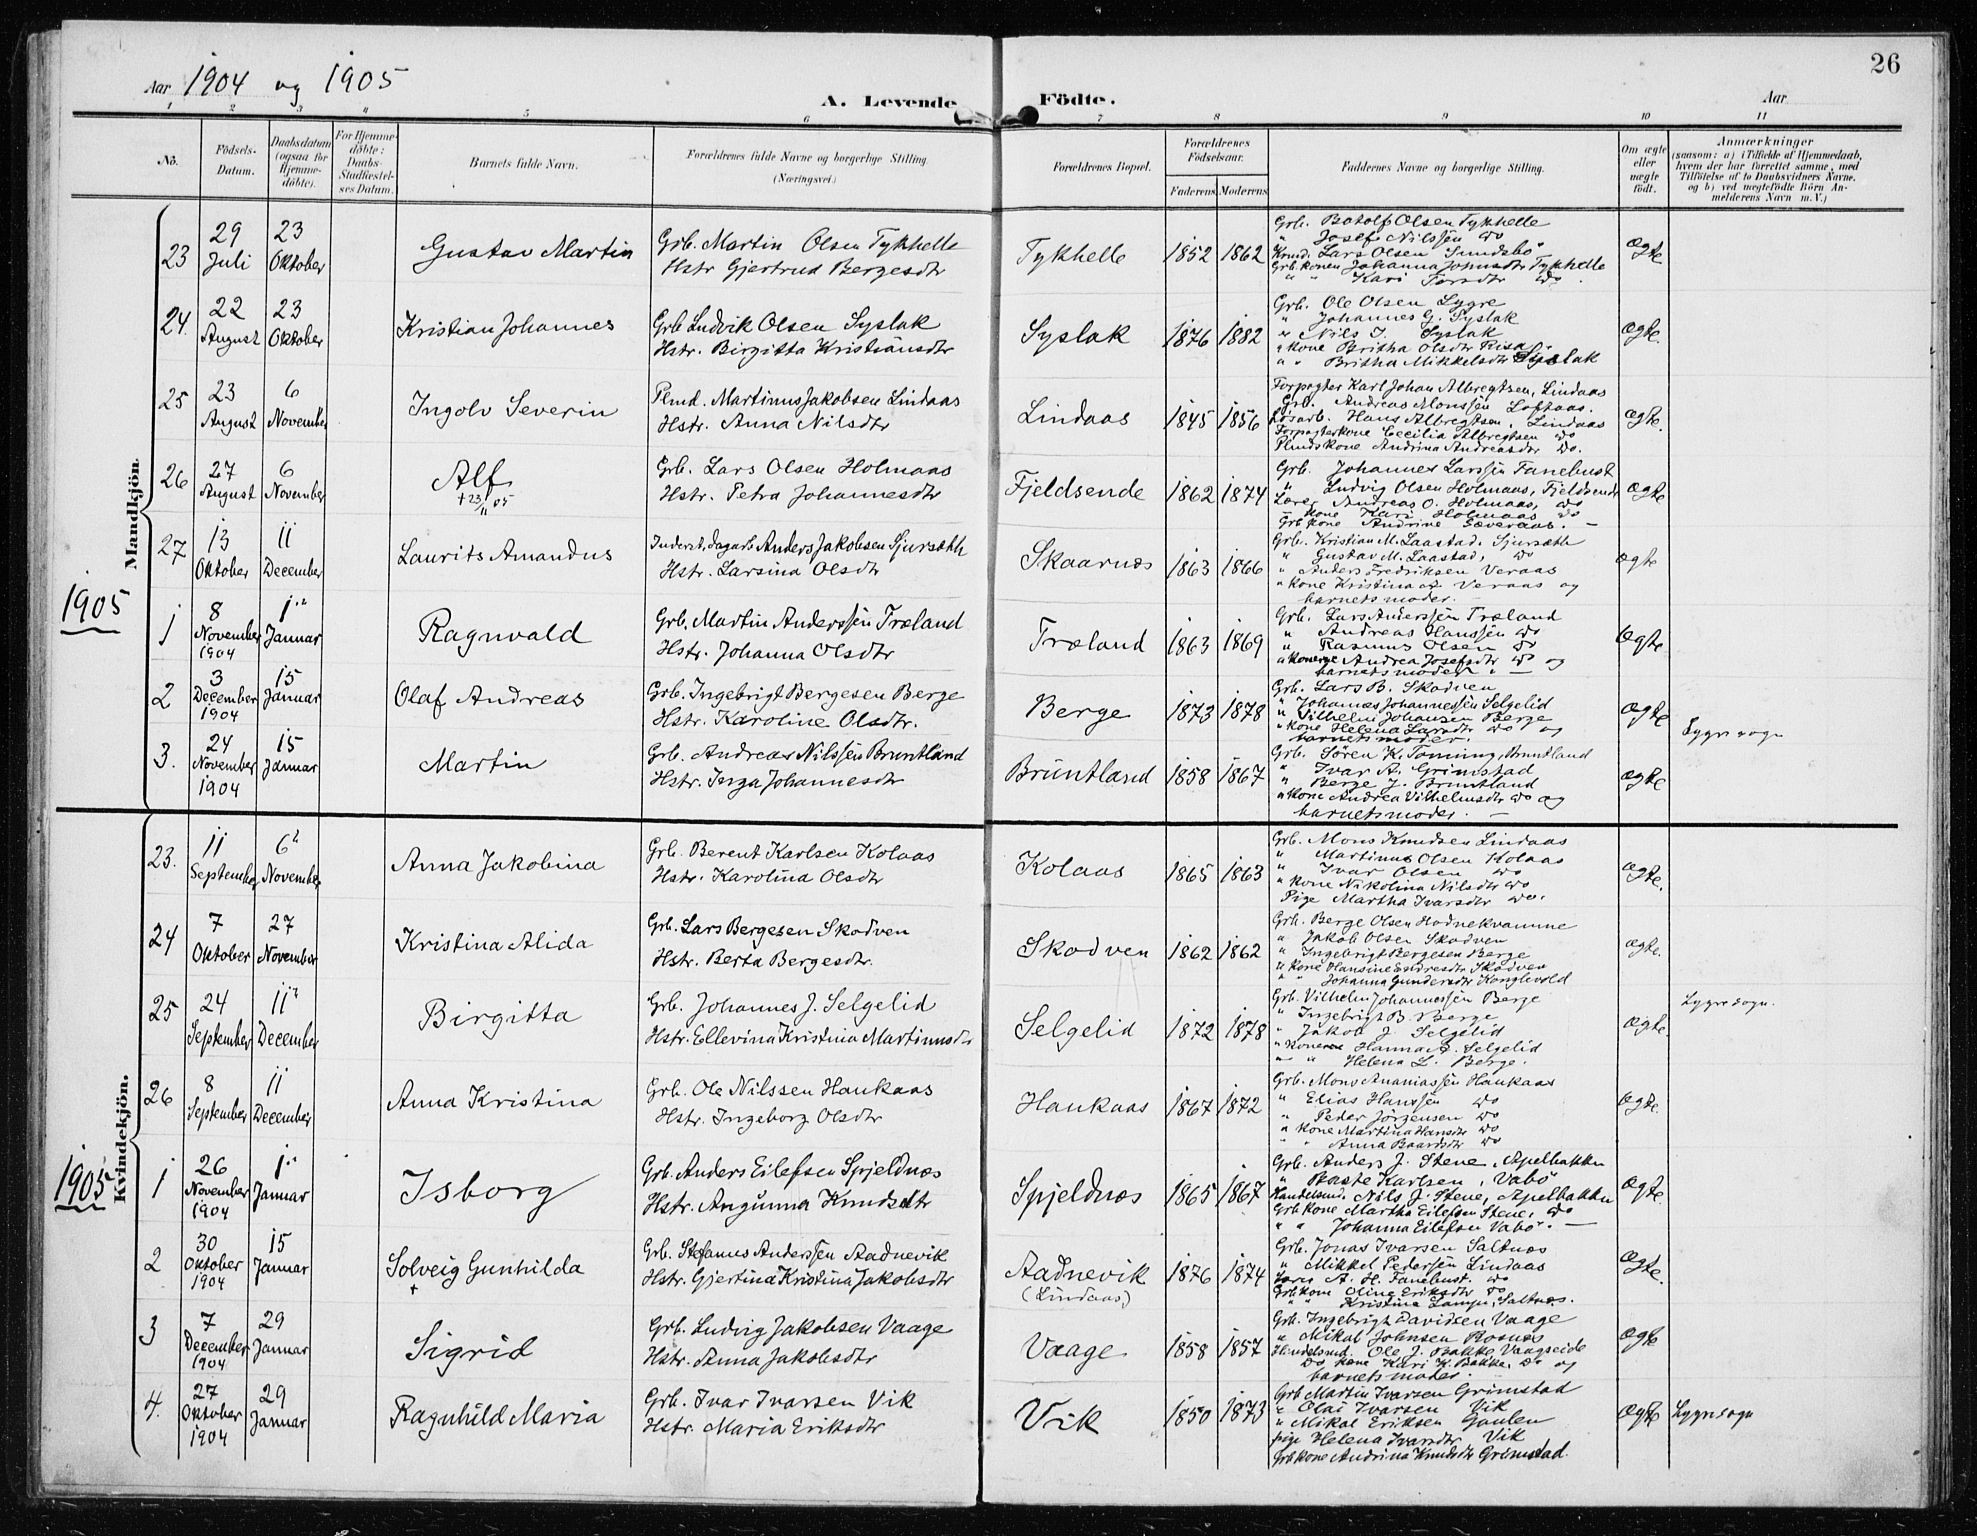 26
Aar 1904 og 1905
A. Levende Födte.
Aar
1 2 3 4 5 6 7 8 9 10 11
No.
Födsels-Datum.
Daabsdatum (ogsaa for Hjemme-döbte).
For Hjemme-döbte: Daabs-Stadfæstel-ses Datum.
Barnets fulde Navn.
Forældrenes fulde Navne og borgerlige Stilling. (Næringsvei.)
Forældrenes Bopæl.
Forældrenes Födselsaar.
Faderens Moderens
Faddernes Navne og borgerlige Stilling.
Om ægte eller uægte födt.
Anmærkninger
(saasom: a) i Tilfælde af Hjemmedaab, hvem der har forrettet samme, med Tilföielse af to Daabsvidners Navne, og b) ved uægtefödte Börn An-melderens Navn m.V.)
Mandkjön.
23 29 Juli 23 Oktober Gustav Martin
Grb. Martin Olsen Tykhelle
Hstr Gjertrud Bergesdtr
Tykhelle 1852 1862
Grb. Botolf Olsen Tykhelle
" Josef Nilssen do
Lars Olsen Sundsbö
Grb. konen Johanna Johnsdtr Tykhelle
" " Kari do
Ægte
24. 22 August 23 Oktober Kristian Johannes
Grb Ludvik Olsen Syslak
Hstr. Birgitta Kristiansdtr
Syslak 1876 1882
Grb. Ole Olsen Lygre
" Johannes G. Syslak
" Nils I. Syslak
" kone Britha Olsdtr Risa
" " Britha Mikkelsdtr Syslak
Ægte.
25 23 August 6 November Ingolv Severin
Plmd. Martinus Jakobsen Lindaas
Hstr. Anna Nilsdtr
Lindaas 1845 1856
Forpagter Karl Johan Albregtsen, Lindaas
Grb. Andreas Monssen Loftaas.
Lösarb. Hans Albregtsen, Lindaas
Forpagterkone Cecilia Albregtsen do
Plmdskone Andrina Andreasdtr do.
Ægte.
26 27 August 6 November Alf
+ 23/11 05
Grb. Lars Olsen Holmaas
Hstr. Petra Johannesdtr
Fjeldsende 1862 1874
Grb. Johannes Larssen Fanebust
" Ludvig Olsen Holmaas, Fjeldsende
Andreas O. Holmaas, do
" kone Kari Holmaas do
Grb kone Andrine Sæveraas. —
Ægte
27 13 Oktober 11 December Laurits Amandus
Inderst, dagarb Anders Jakobsen Sjursæth
Hstr. Larsina Olsdtr
Skaarnes 1863 1866
Grb. Kristian M. Laastad, Sjursæth
" Gustav M. Laastad, do
" Anders Fredriksen Veraas
" kone Kristina Veraas og
barnets moder. —
Ægte
1905
1 8 November 1904 1 Januar Ragnvald
Grb. Martin Anderssen Træland
Hstr. Johanna Olsdtr
Træland 1863 1869
Grb. Lars Anderssen Træland
" Andreas Hanssen do
" Rasmus Olsen do
" konerne Andrea Josefsdtr do og
barnets moder. —
Ægte
2 3 December 1904 15 Januar Olaf Andreas
Grb. Ingebrigt Bergesen Berge
Hstr. Karoline Olsdtr.
Berge 1873 1878
Grb. Lars B. Skodven
" Johannes Johannessen Selgelid
" Vilhelm Johansen Berge
" kone Helena Larsdtr do og
barnets moder.
Ægte
Lygre sogn
3. 24 November 1904 15 Januar Martin
Grb. Andreas Nilssen Bruntland
Hstr. Inga Johannesdtr
Bruntland 1858 1867
Grb. Søren K. Toming, Bruntland
" Ivar A. Grimstad
" Berge J. Bruntland
" kone Andrea Vilhelmsdtr do og
barnets moder. —
Ægte
Kvindekjön.
23. 11 September 6 November Anna Jakobina
Grb. Berent Karlsen Kolaas
Hstr. Karolina Olsdtr
Kolaas 1865 1863
Grb. Mons Knudsen Lindaas
" Martinus Olsen Kolaas
" Ivar Olsen do
" kone Nikolina Nilsdtr do
Pige Martha Ivarsdtr do.
Ægte.
24 7 Oktober 27 November Kristina Alida
Grb. Lars Bergesen Skodven
Hstr. Berta Bergesdtr.
Skodven 1862 1862
Grb. Berge Olsen Hodnekvamme
" Jakob Olsen Skodven
" Ingebrigt Bergesen Berge
" kone Hansine Endresdtr Skodven
" " Johanna Gundersdtr Konglevold
Ægte.
25 24 September 11 December Birgitta
Grb. Johannes J. Selgelid
Hstr. Ellevina Kristina Martinusdtr
Selgelid 1872 1878
Grb. Vilhelm Johannessen Berge
" Ingebrigt B. Berge
" Jakob J. Selgelid
" konerne Hanna A. Selgelid
" " Helena L. Berge.
Ægte.
Lygre sogn.
26 8 September 11 December Anna Kristina
Grb. Ole Nilssen Haukaas
Hstr. Ingeborg Olsdtr
Haukaas 1867 1872
Grb. Mons Ananiassen Haukaas
" Elias Hanssen do
" Peder Jörgensen do
" kone Martina Hansdtr do
" " Anna Baardsdtr do
Ægte.
1905
1 26 November 1904 1 Januar Isborg
Grb. Anders Eilefsen Spjeldnes
Hstr. Angunna Knudsdtr
Spjeldnes 1865 1867
Grb. Anders J. Stene, Apelbakken
" Baste Karlsen, Vabö
Handelsmd. Nils J. Stene, Apelbakken
Grb kone Martha Eilefsen Stene, do
" " Johanna Eilefsen Vabö. —
Ægte.
2 30 Oktober 1904 15 Januar Solveig Gunhilda
+
Grb. Stefanus Anderssen Aadnevik
Hstr. Gjertina Kristina Jakobsdtr
Aadnevik (Lindaas) 1876 1874
Grb. Jonas Ivarsen Saltnes
" Mikkel Pedersen Lindaas
A. H. Fanebust. do
Grb kone Oline Eriksdtr do
" " Kristine Saltnes.
Ægte.
3 7 December 1904 29 Januar Sigrid
Grb. Ludvig Jakobsen Vaage
Hstr. Anna Jakobsdtr
Vaage 1858 1857
Grb. Ingebrigt Davidsen Vaage
" Mikal Johnsen Rosnes
Handelsmd. Ole J. Bakke Vaagseide
do kone Kari K. Bakke, do og
barnets moder.
Ægte
4. 27 Oktober 1904 29 Januar Ragnhild Maria
Grb. Ivar Ivarsen Vik
Hstr. Maria Eriksdtr
Vik 1850 1873
Grb Martin Ivarsen Grimstad
" Olai Ivarsen Vik
" Mikal Eriksen Gaulen
pige Helena Ivarsdtr Vik
Grb kone Andrina Knudsdtr Grimstad.
Ægte
Lygre sogn